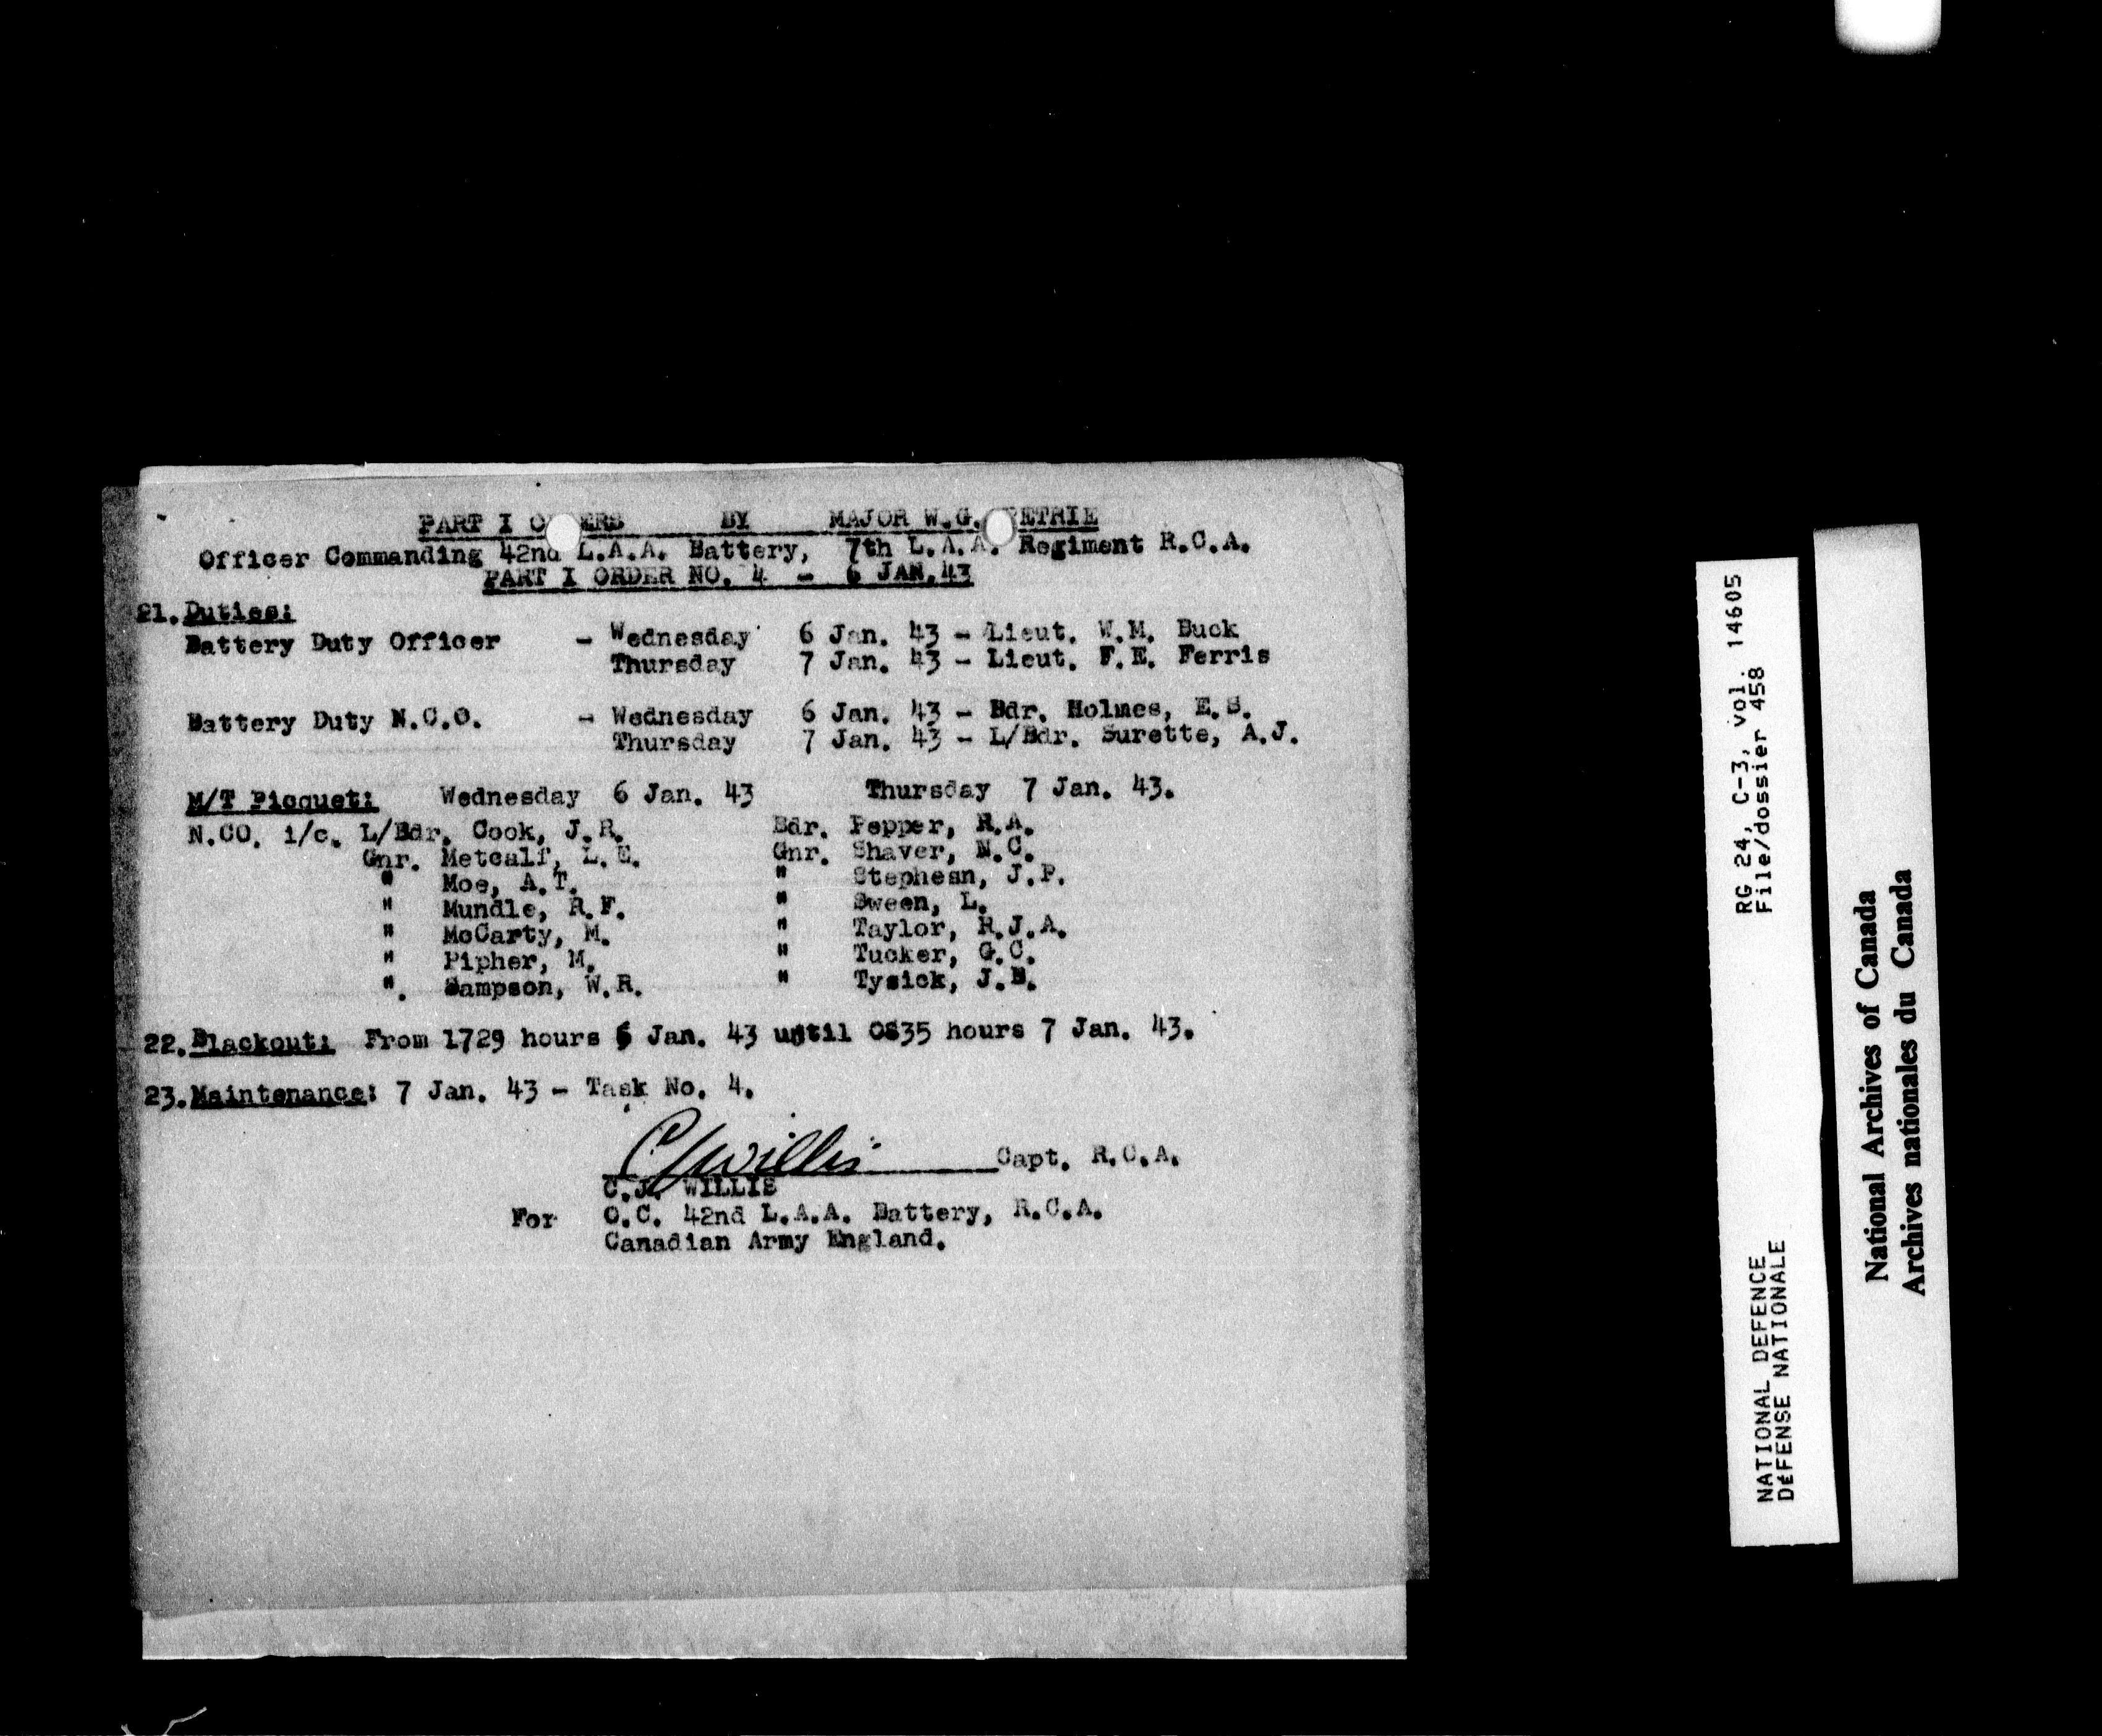 PART I O ERS BY MAJOR W.G. PETRIE
Officer Commanding 42nd L.A.A. Battery, 7th L.A.A. Regiment R.C.A.
PART I ORDER NO. 4 - 6 JAN.43
21. Duties:
Battery Duty Officer - Wednesday 6 Jan. 43 - Lieut. W.M. Buck
Thursday 7 Jan. 43 - Lieut. F.E. Ferris
Battery Duty N.C.O. - Wednesday 6 Jan. 43 - Bdr. Holmes, E.S.
Thursday 7 Jan. 43 - L/Bdr. Surette, A.J.
M/T Picquet: Wednesday 6 Jan. 43 Thursday 7 Jan. 43.
N.CO. i/c. L/Bdr. Cook, J.R. Bdr. Pepper, R.A.
Gnr. Metcalf, L.E. Gnr. Shaver, N.C.
" Moe, A.T. " Stephesn, J.P.
" Mundle, R.F. " Sween, L.
" McCarty, M. " Taylor, R.J.A.
" Pipher, M. " Tucker, G.C.
". Sampson, W.R. " Tysick, J.B.
22. Blackout: From 1729 hours 6 Jan. 43 until 0835 hours 7 Jan. 43.
23. Maintenance: 7 Jan. 43 - Task No. 4.
CJWillis Capt. R.C.A.
C.J. WILLIS
For O.C. 42nd L.A.A. Battery, R.C.A.
Canadian Army England.
NATIONAL DEFENCE RG 24, C-3, vol. 14605
DÉFENSE NATIONALE File/dossier 458
National Archives of Canada
Archives nationales du Canada